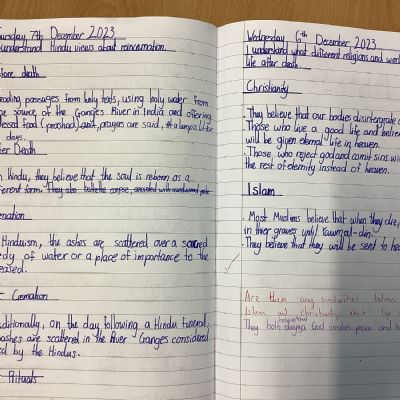 ursday 7th December 2023
understand Hindu views about reincarnation.
fore death
eading passages from holy texts, using holy water from
e source of the Ganges River in India and offering
lessed food (prashad) and, prayers are said, # a lamp is lit for
days.
ter Death
Hindu, they believe that the soul is reborn as a
fferent form. They also bathe the corpse, anointed with sandalwood
mation
Hinduism, the ashes are scattered over a sacred
dy of water or a place of importance to the
eased.
Cremation
aditionally, on the day following a Hindu funeral,
ashes are scattered in the River Ganges considered
ed by the Hindus.
Rituals
Wednesday 6th December 2023
I understand what different religions and worl
life after death
Christianity
They believe that our bodies disintergrate
Those who live a good life and believe
will be given eternal life in heaven.
Those who reject god and comit sins wi
the rest of eternity instead of heaven.
Islam
Most Muslims believe that when they die,
in thier graves until Yawm al-din.
They believe that they will be sent to hea
Are there any similarities between
Islam and Christianity about life
believe that
They both obeying God creates peace and